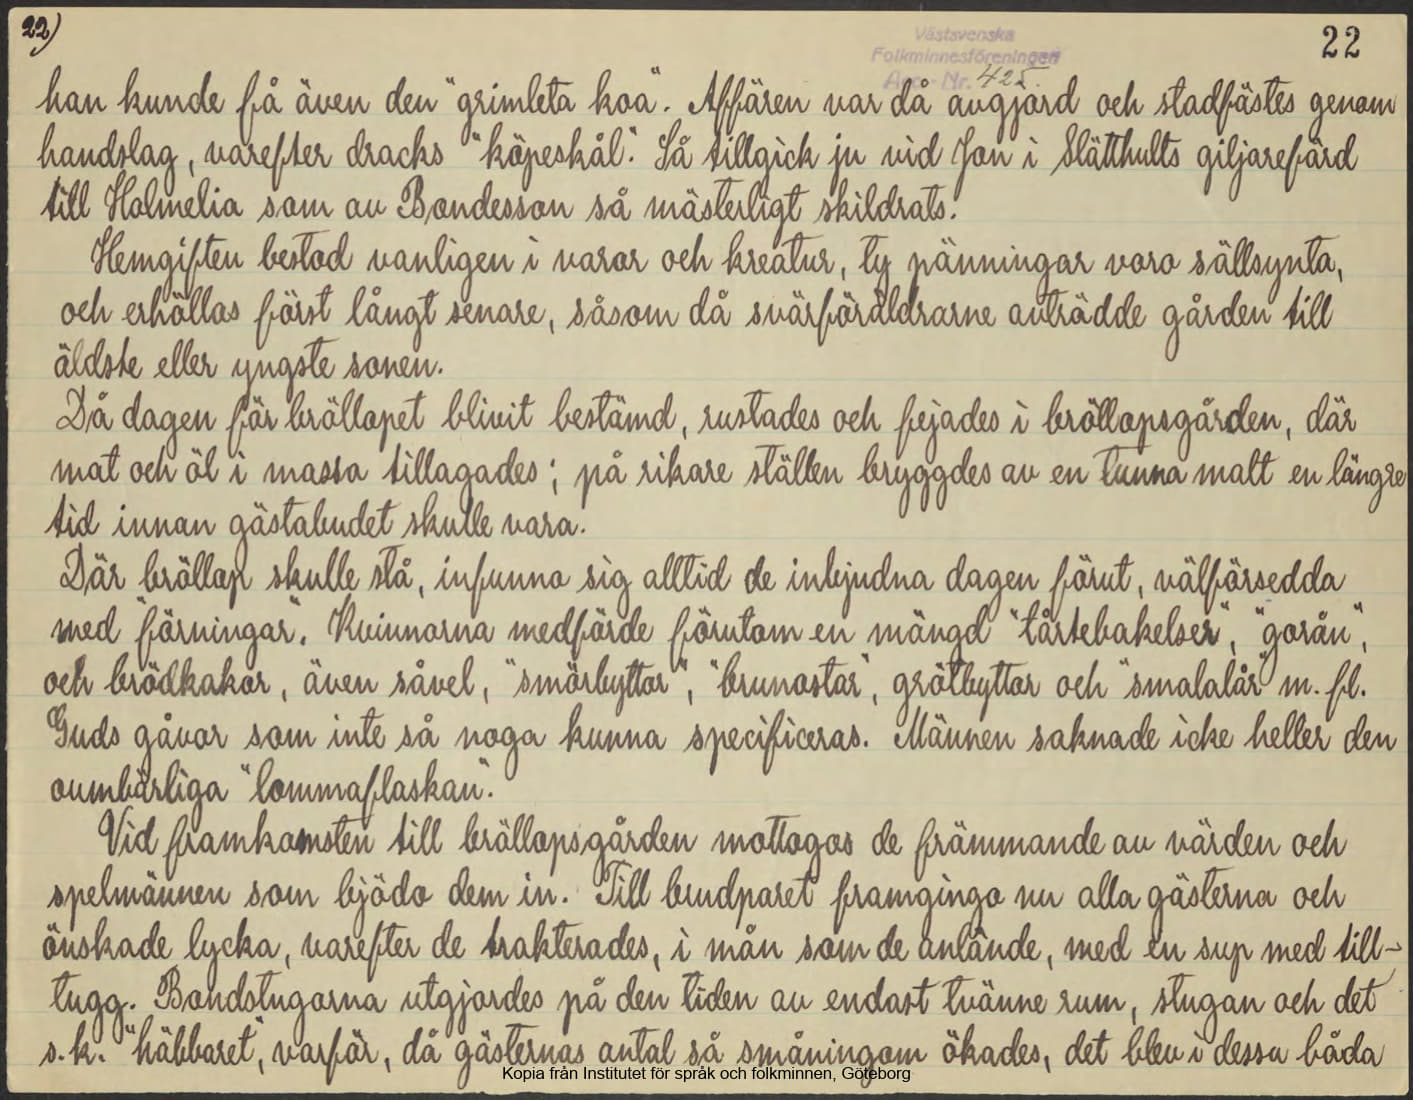 22)
Västsvenska
Folkminnesföreningen
Acc. Nr. 425.
22
han kunde få även den "grimleta koa". Affären var då avgjord och stadfästes genom
handslag, varefter dracks "köpeskål". Så tillgick ju vid Jon i Slätthults giljarefärd
till Halmelia som av Bondesson så mästerligt skildrats.
Hemgiften bestod vanligen i varor och kreatur, ty pänningar voro sällsynta,
och erhöllos först långt senare, såsom då svärföräldrarne avträdde gården till
äldste eller yngste sonen.
Då dagen för bröllopet blivit bestämd, rustades och fejades i bröllopsgården, där
mat och öl i massa tillagades; på rikare ställen bryggdes av en tunna malt en längre
tid innan gästabudet skulle vara.
Där bröllop skulle stå, infunno sig alltid de inbjudna dagen förut, välförsedda
med "förningar". Kvinnorna medförde förutom en mängd "tårtebakelser", "gorån",
och brödkakor, även såvel, "smörbyttor", "brunostar", grötbyttor och "smalalår" m. fl.
Guds gåvor som inte så noga kunna specificeras. Männen saknade icke heller den
oumbärliga "lommaflaskan".
Vid framkomsten till bröllopsgården mottogos de främmande av värden och
spelmännen som bjödo dem in. Till brudparet framgingo nu alla gästerna och
önskade lycka, varefter de trakterades, i mån som de anlände, med en sup med till-
tugg. Bondstugorna utgjordes på den tiden av endast tvänne rum, stugan och det
s.k. "häbbaret", varför, då gästernas antal så småningom ökades, det blev i dessa båda
Kopia från Institutet för språk och folkminnen, Göteborg